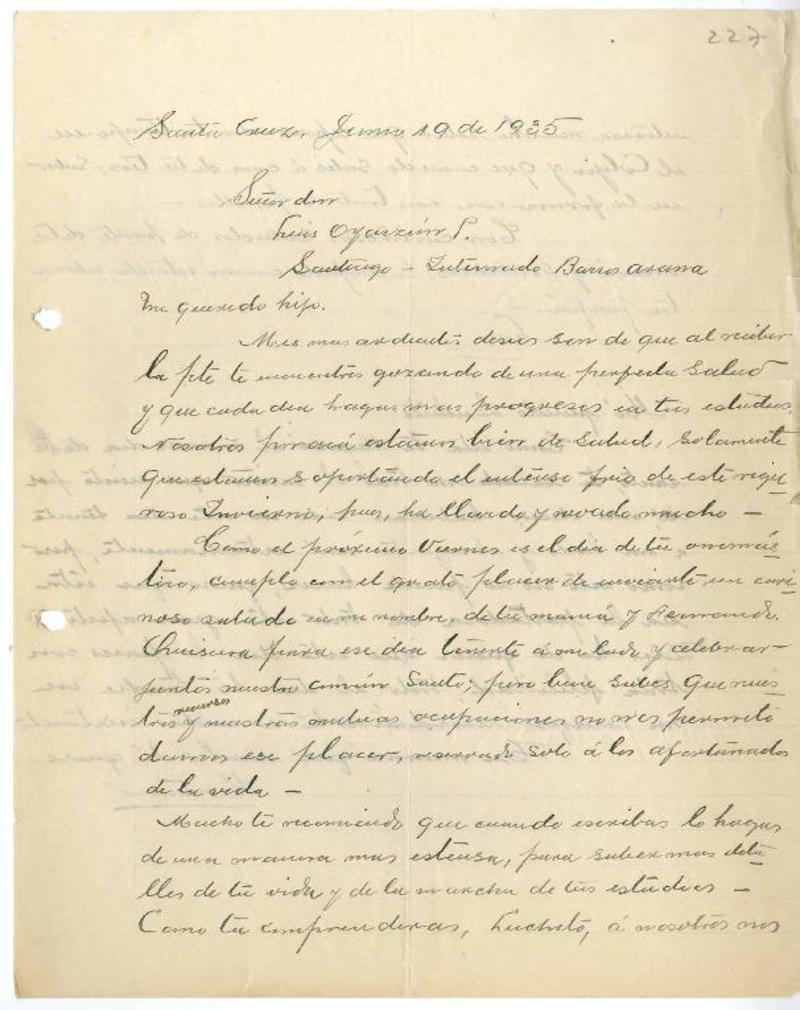 227
Santa Cruz, Junio 19 de 1935
Señor don
Luis Oyarzún P.
Santiago - Internado Barros arana
Mi querido hijo.
Mis mas ardientes deseos son de que al recibir
la pte te encuentres gozando de una perfecta salud
y que cada dia hagas mas progresos en tus estudios.
Nosotros por acá estamos bien de salud, solamente
que estamos soportando el intenso frio de este rigu-
roso Invierno; pues, ha llovido y nevado mucho -
Como el próximo Viernes es el dia de tu onomás-
tico, cumplo con el grato placer de enviarte un cari-
ñoso saludo en mi nombre, de tu mamá y Fernando.
Quisiera para ese dia tenerte á mi lado y celebrar
juntos nuestro común Santo; pero bien sabes que nues-
tros recursos y nuestras mutuas ocupaciones no nos permite
darnos ese placer, reservado solo á los afortunados
de la vida -
Mucho te recomiendo que cuando escribas lo hagas
de una manera mas estensa, para saber mas deta-
lles de tu vida y de la marcha de tus estudios -
Como tu comprenderas, Luchito, á nosotros nos